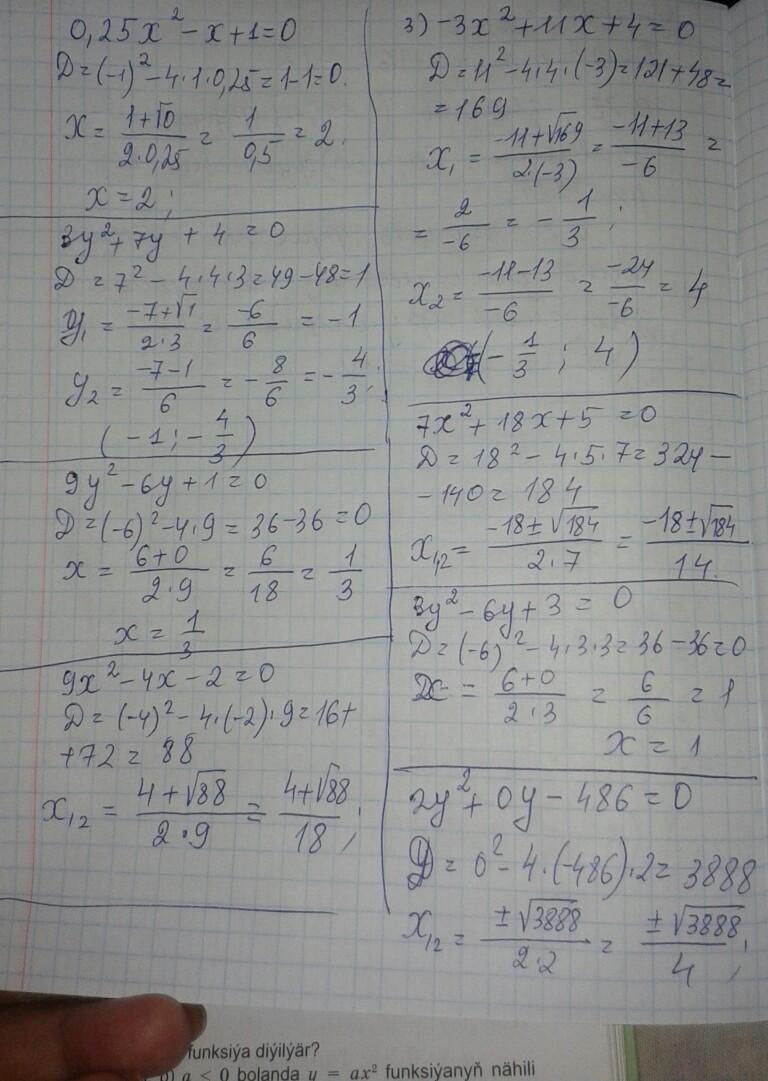 0,25x² - x + 1 = 0
D = (-1)² - 4·1·0,25 = 1-1 = 0.
x = (1+√0)/(2·0,25) = 1/0,5 = 2.
x = 2;
3y² + 7y + 4 = 0
D = 7² - 4·4·3 = 49 - 48 = 1
y₁ = (-7+√1)/(2·3) = -6/6 = -1
y₂ = (-7-1)/6 = -8/6 = -4/3;
(-1; -4/3)
9y² - 6y + 1 = 0
D = (-6)² - 4·9 = 36-36 = 0
x = (6+0)/(2·9) = 6/18 = 1/3
x = 1/3
9x² - 4x - 2 = 0
D = (-4)² - 4·(-2)·9 = 16+
+72 = 88
x₁,₂ = (4+√88)/(2·9) = (4+√88)/18;
3) -3x² + 11x + 4 = 0
D = 11² - 4·4·(-3) = 121 + 48 =
= 169
x₁ = (-11+√169)/(2·(-3)) = (-11+13)/-6 =
= 2/-6 = -1/3;
x₂ = (-11-13)/-6 = -24/-6 = 4
(-1/3; 4)
7x² + 18x + 5 = 0
D = 18² - 4·5·7 = 324 -
- 140 = 184
x₁,₂ = (-18±√184)/(2·7) = (-18±√184)/14.
3y² - 6y + 3 = 0
D = (-6)² - 4·3·3 = 36 - 36 = 0
x = (6+0)/(2·3) = 6/6 = 1
x = 1
2y² + 0y - 486 = 0
D = 0² - 4·(-486)·2 = 3888
x₁,₂ = ±√3888/(2·2) = ±√3888/4;
funksiýa diýilýär?
a < 0 bolanda y = ax² funksiýanyň nähili